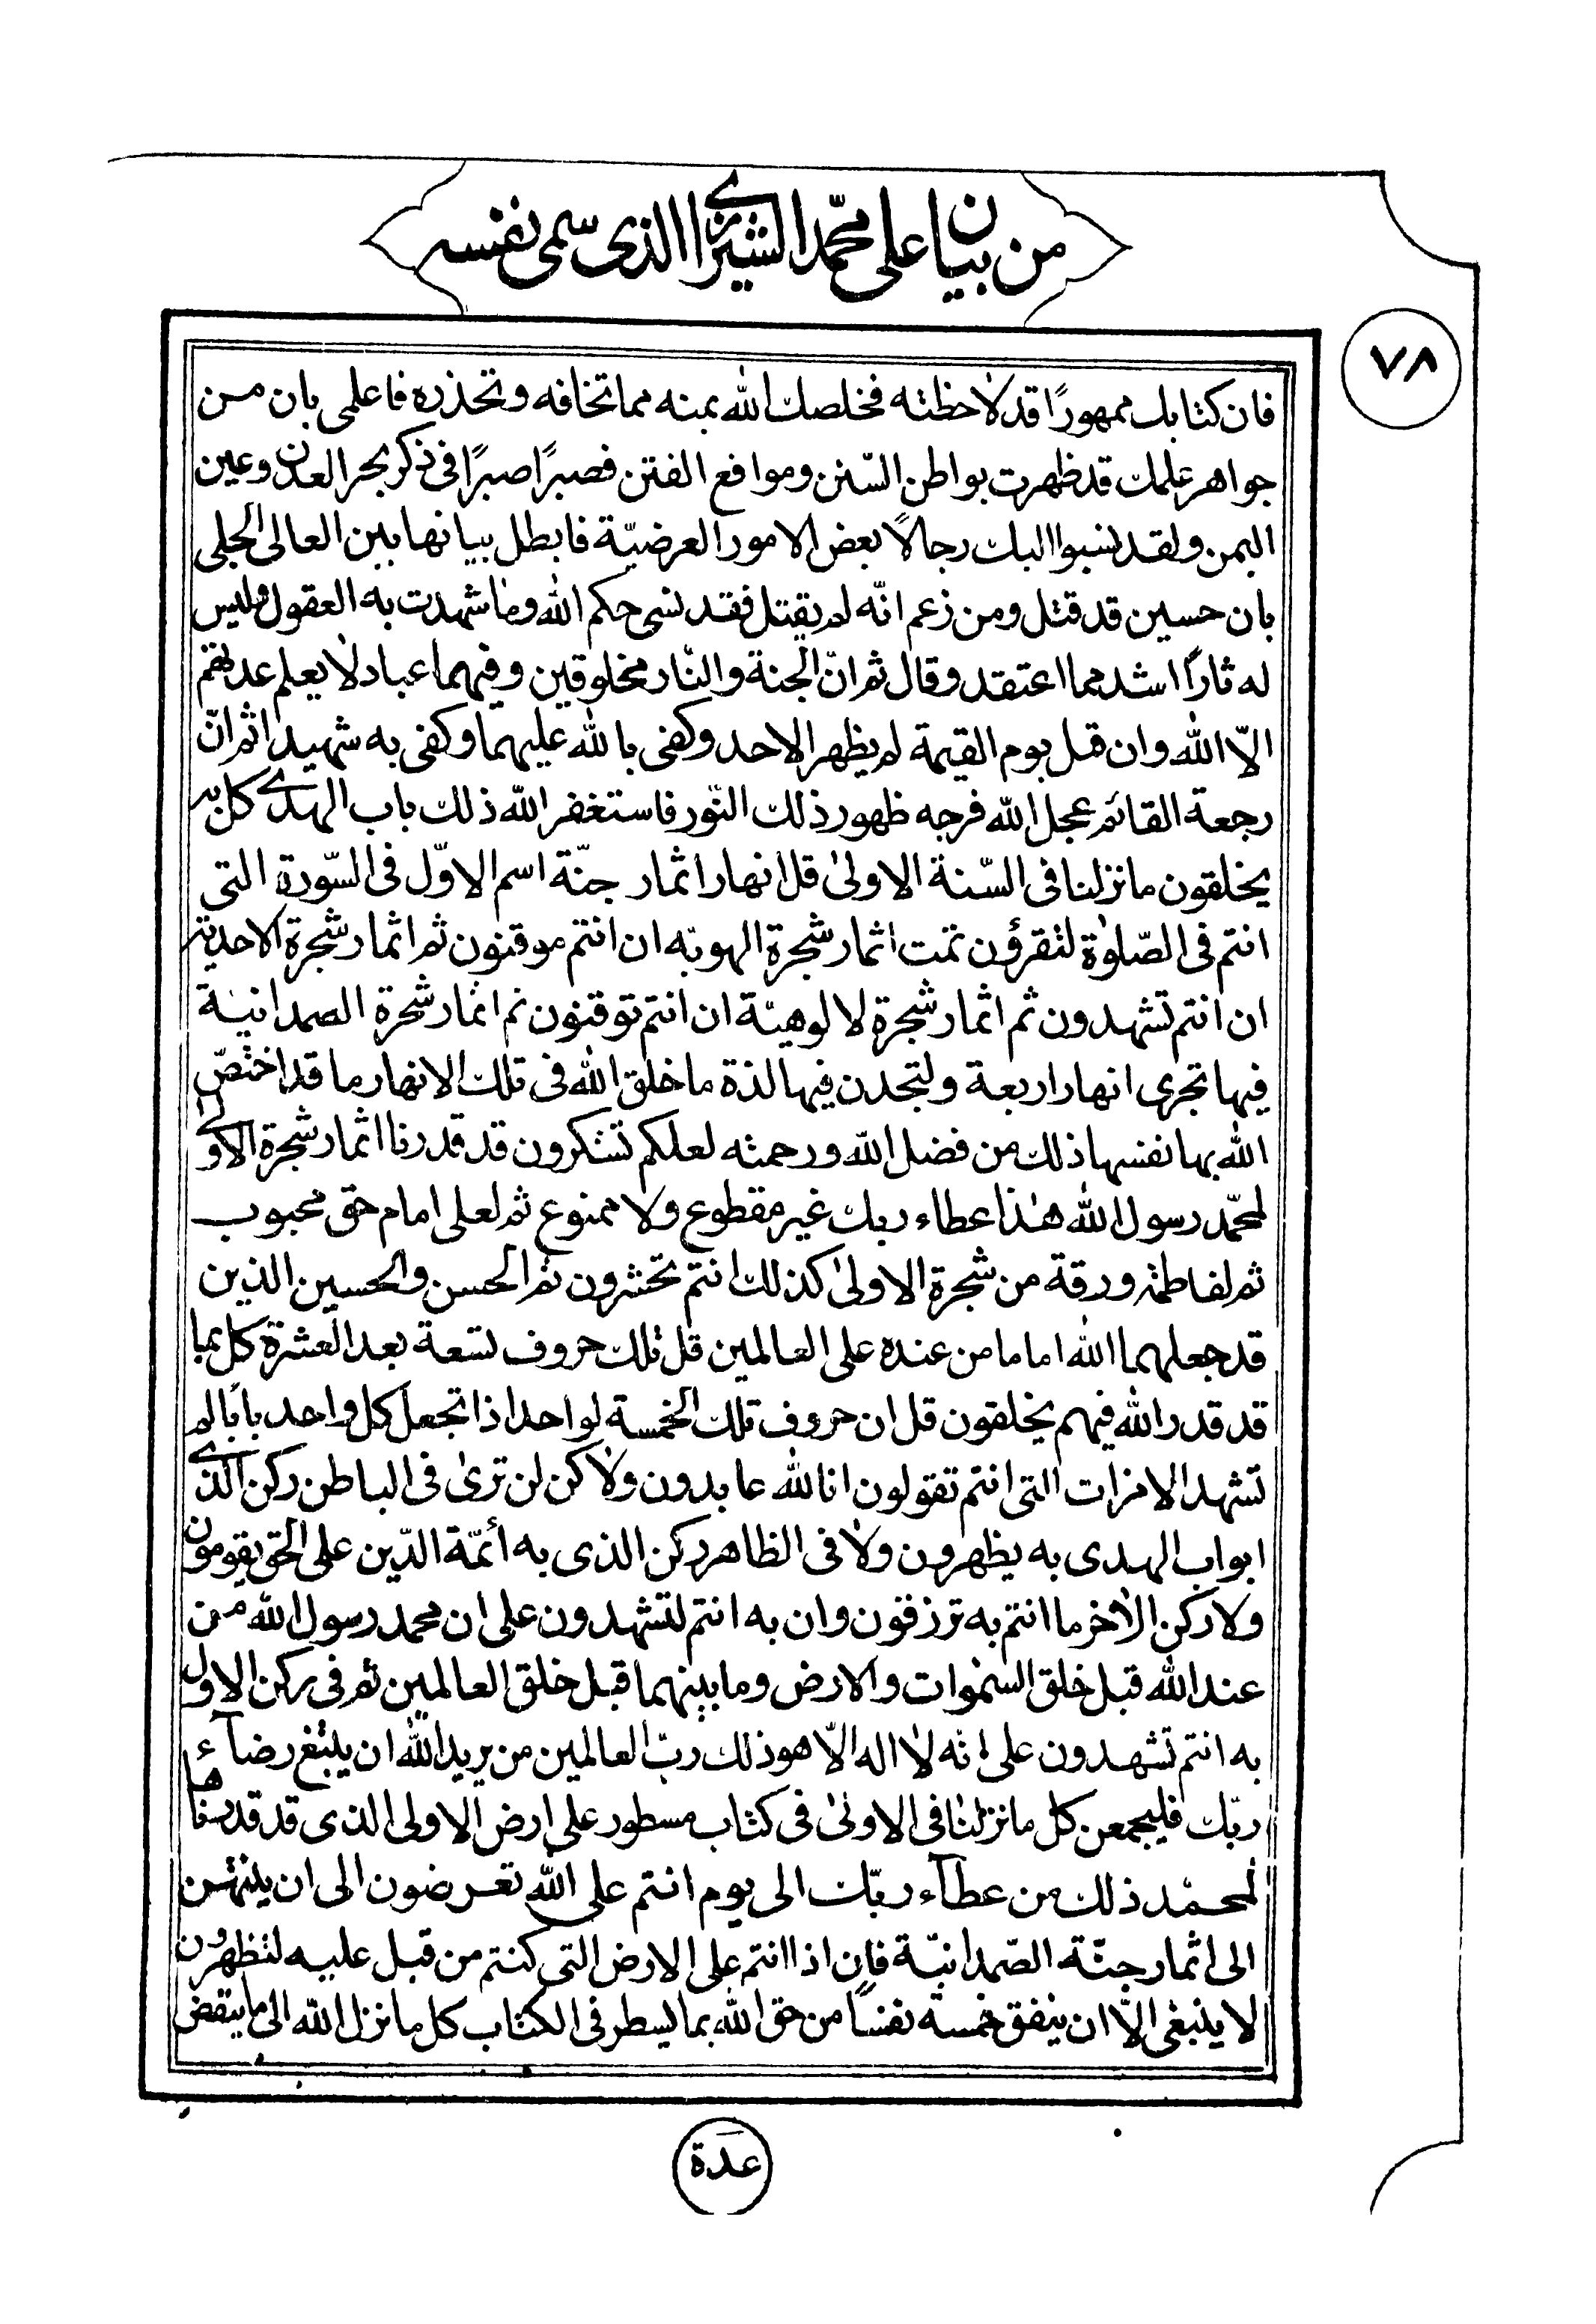 من بيان على محمّد الشيرازى الذى سمى نفسه
٧٨
فان كتابك ممهورًا قد لاحظته فخلصك الله بمنه مما تخافه وتحذره فاعلمى بان من
جواهر علمك قد ظهرت بواطن السّنن ومواقع الفتن فصبرًا صبرًا فى ذكر بحر العدن وعين
اليمن ولقد نسبوا اليك رجالًا بعض الامور العرضيّة فابطل بيانها بين العالى الجلى
بان حسين قد قتل ومن زعم انّه لم يقتل فقد نسى حكم الله وما شهدت به العقول وليس
له ثارًا اشد مما اعتقد وقال ثم انّ الجنة والنّار مخلوقين وفيهما عباد لا يعلم عدتهم
الّا الله وان قبل يوم القيمة لم يظهر الاحد وكفى بالله عليهما وكفى به شهيدا ثم انّ
رجعة القائم عجل الله فرجه ظهور ذلك النّور فاستغفر الله ذلك باب الهدى كل به
يخلقون ما نزلنا فى السّنة الاولىٰ قل انهار اثمار جنّة اسم الاوّل فى السّورة التى
انتم فى الصّلوٰة لتقرؤن تمت اثمار شجرة الهويّه ان انتم موقنون ثم اثمار شجرة الاحدية
ان انتم تشهدون ثم اثمار شجرة لالوهيّة ان انتم توقنون ثم اثمار شجرة الصمدانيّة
فيها تجرى انهار اربعة ولتجدن فيها لذة ما خلق الله فى تلك الانهار ما قد اختصّ
الله بها نفسها ذلك من فضل الله ورحمته لعلكم تشكرون قد قدرنا اثمار شجرة الاولى
لمحمّد رسول الله هٰذا عطاء ربك غير مقطوع ولا ممنوع ثم لعلى امام حق محبوب
ثم لفاطمة ورقة من شجرة الاولىٰ كذلك انتم تحشرون ثم الحسن والحسين الذين
قد جعلهما الله اماما من عنده على العالمين قل تلك حروف تسعة بعد العشرة كل بما
قد قدر الله فيهم يخلقون قل ان حروف تلك الخمسة لواحد اذا تجعل كل واحد بابًا لم
تشهد الامرات التى انتم تقولون انا لله عابدون ولاكن لن ترىٰ فى الباطن ركن الذى
ابواب الهدى به يظهرون ولا فى الظاهر ركن الذى به أئمّة الدّين على الحق يقومون
ولا ركن الاخر ما انتم به ترزقون وان به انتم لتشهدون على ان محمد رسول الله من
عند الله قبل خلق السمٰوات والارض وما بينهما قبل خلق العالمين ثم فى ركن الاول
به انتم تشهدون على انّه لا اله الّا هو ذلك ربّ العالمين من يريد الله ان يبتغ رضآء
ربّك فليجمعن كل ما نزلنا فى الاولىٰ فى كتاب مسطور على ارض الاولى الذى قد قدرناها
لمحمّد ذلك من عطآء ربّك الى يوم انتم على الله تعرضون الى ان ينتهن
الى اثمار جنّة الصّمدانيّة فان اذا انتم على الارض التى كنتم من قبل عليه لتظهرون
لا ينبغى الّا ان ينفق خمسة نفسًا من حق الله بما يسطر فى الكتاب كل ما نزل الله الى ما ينقض
عدة